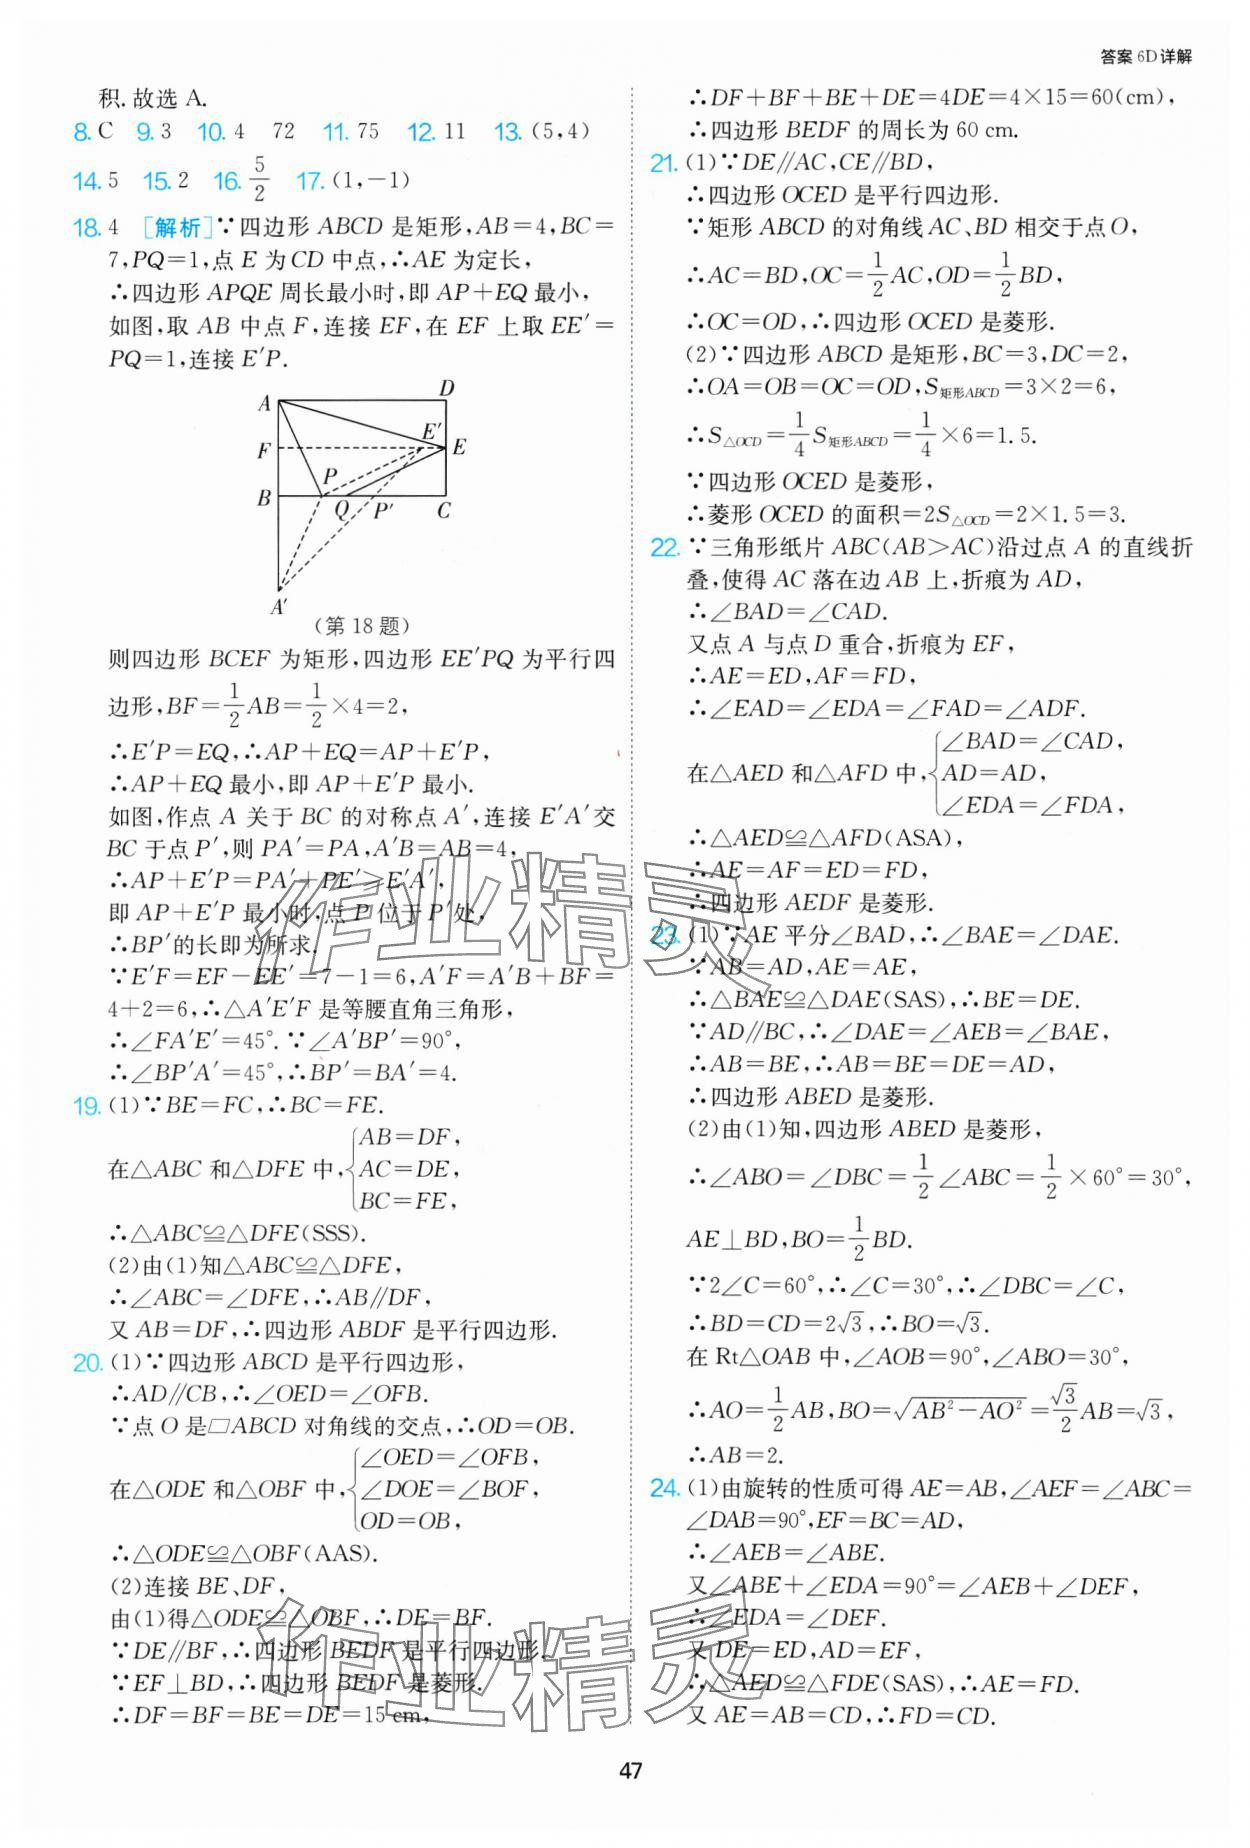 答案 6D 详解
积.故选 A.
8. C 9. 3 10. 4 72 11. 75 12. 11 13. (5,4)
14. 5 15. 2 16. 5/2 17. (1,-1)
18. 4 [解析]∵四边形 ABCD 是矩形,AB=4,BC=
7,PQ=1,点 E 为 CD 中点,∴AE 为定长,
∴四边形 APQE 周长最小时,即 AP+EQ 最小,
如图,取 AB 中点 F,连接 EF,在 EF 上取 EE′=
PQ=1,连接 E′P.
A D
F E′ E
B P Q P′ C
A′
(第 18 题)
则四边形 BCEF 为矩形,四边形 EE′PQ 为平行四
边形,BF=1/2AB=1/2×4=2,
∴E′P=EQ,∴AP+EQ=AP+E′P,
∴AP+EQ 最小,即 AP+E′P 最小.
如图,作点 A 关于 BC 的对称点 A′,连接 E′A′交
BC 于点 P′,则 PA′=PA,A′B=AB=4,
∴AP+E′P=PA′+PE′≥E′A′,
即 AP+E′P 最小时,点 P 位于 P′处,
∴BP′的长即为所求.
∵E′F=EF-EE′=7-1=6,A′F=A′B+BF=
4+2=6,∴△A′E′F 是等腰直角三角形,
∴∠FA′E′=45°.∵∠A′BP′=90°,
∴∠BP′A′=45°,∴BP′=BA′=4.
19. (1)∵BE=FC,∴BC=FE.
在△ABC 和△DFE 中,{AB=DF,
AC=DE,
BC=FE,
∴△ABC≌△DFE(SSS).
(2)由(1)知△ABC≌△DFE,
∴∠ABC=∠DFE,∴AB∥DF,
又 AB=DF,∴四边形 ABDF 是平行四边形.
20. (1)∵四边形 ABCD 是平行四边形,
∴AD∥CB,∴∠OED=∠OFB.
∵点 O 是▱ABCD 对角线的交点,∴OD=OB.
在△ODE 和△OBF 中,{∠OED=∠OFB,
∠DOE=∠BOF,
OD=OB,
∴△ODE≌△OBF(AAS).
(2)连接 BE、DF,
由(1)得△ODE≌△OBF,∴DE=BF.
∵DE∥BF,∴四边形 BEDF 是平行四边形.
∵EF⊥BD,∴四边形 BEDF 是菱形.
∴DF=BF=BE=DE=15 cm,
∴DF+BF+BE+DE=4DE=4×15=60(cm),
∴四边形 BEDF 的周长为 60 cm.
21. (1)∵DE∥AC,CE∥BD,
∴四边形 OCED 是平行四边形.
∵矩形 ABCD 的对角线 AC、BD 相交于点 O,
∴AC=BD,OC=1/2AC,OD=1/2BD,
∴OC=OD,∴四边形 OCED 是菱形.
(2)∵四边形 ABCD 是矩形,BC=3,DC=2,
∴OA=OB=OC=OD,S矩形ABCD=3×2=6,
∴S△OCD=1/4S矩形ABCD=1/4×6=1.5.
∵四边形 OCED 是菱形,
∴菱形 OCED 的面积=2S△OCD=2×1.5=3.
22. ∵三角形纸片 ABC(AB>AC)沿过点 A 的直线折
叠,使得 AC 落在边 AB 上,折痕为 AD,
∴∠BAD=∠CAD.
又点 A 与点 D 重合,折痕为 EF,
∴AE=ED,AF=FD,
∴∠EAD=∠EDA=∠FAD=∠ADF.
在△AED 和△AFD 中,{∠BAD=∠CAD,
AD=AD,
∠EDA=∠FDA,
∴△AED≌△AFD(ASA),
∴AE=AF=ED=FD,
∴四边形 AEDF 是菱形.
23. (1)∵AE 平分∠BAD,∴∠BAE=∠DAE.
∵AB=AD,AE=AE,
∴△BAE≌△DAE(SAS),∴BE=DE.
∵AD∥BC,∴∠DAE=∠AEB=∠BAE,
∴AB=BE,∴AB=BE=DE=AD,
∴四边形 ABED 是菱形.
(2)由(1)知,四边形 ABED 是菱形,
∴∠ABO=∠DBC=1/2∠ABC=1/2×60°=30°,
AE⊥BD,BO=1/2BD.
∵2∠C=60°,∴∠C=30°,∴∠DBC=∠C,
∴BD=CD=2√3,∴BO=√3.
在 Rt△OAB 中,∠AOB=90°,∠ABO=30°,
∴AO=1/2AB,BO=√(AB²-AO²)=√3/2AB=√3,
∴AB=2.
24. (1)由旋转的性质可得 AE=AB,∠AEF=∠ABC=
∠DAB=90°,EF=BC=AD,
∴∠AEB=∠ABE.
又∠ABE+∠EDA=90°=∠AEB+∠DEF,
∴∠EDA=∠DEF.
又 DE=ED,AD=EF,
∴△AED≌△FDE(SAS),∴AE=FD.
又 AE=AB=CD,∴FD=CD.
47
作业精灵
作业精灵